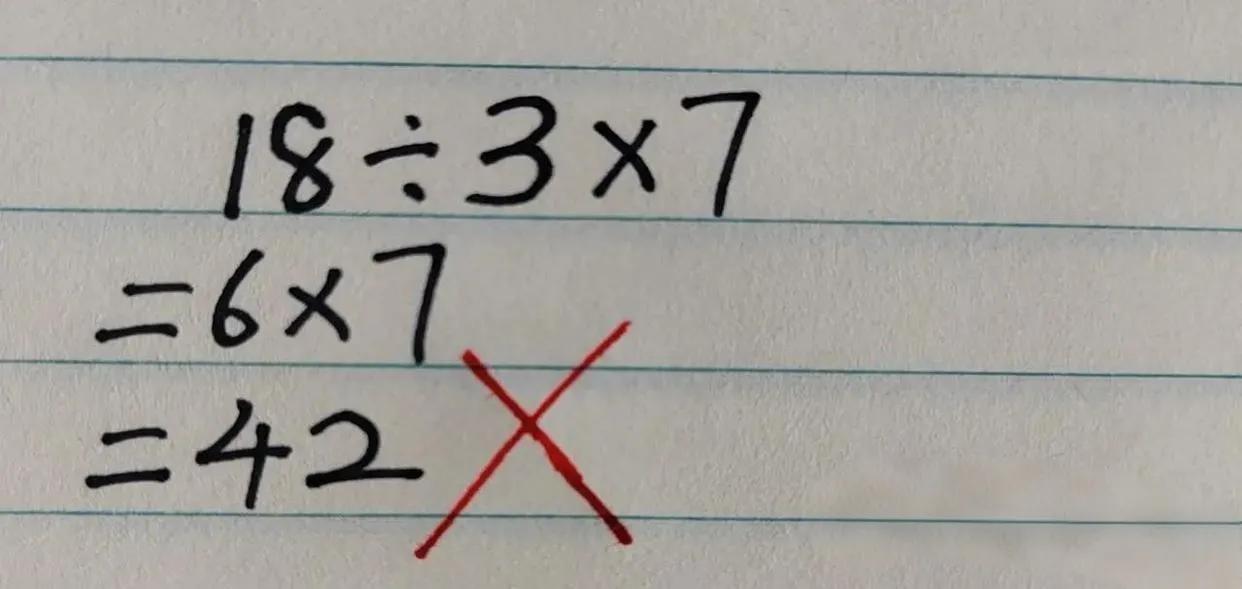 18÷3×7
=6×7
=42